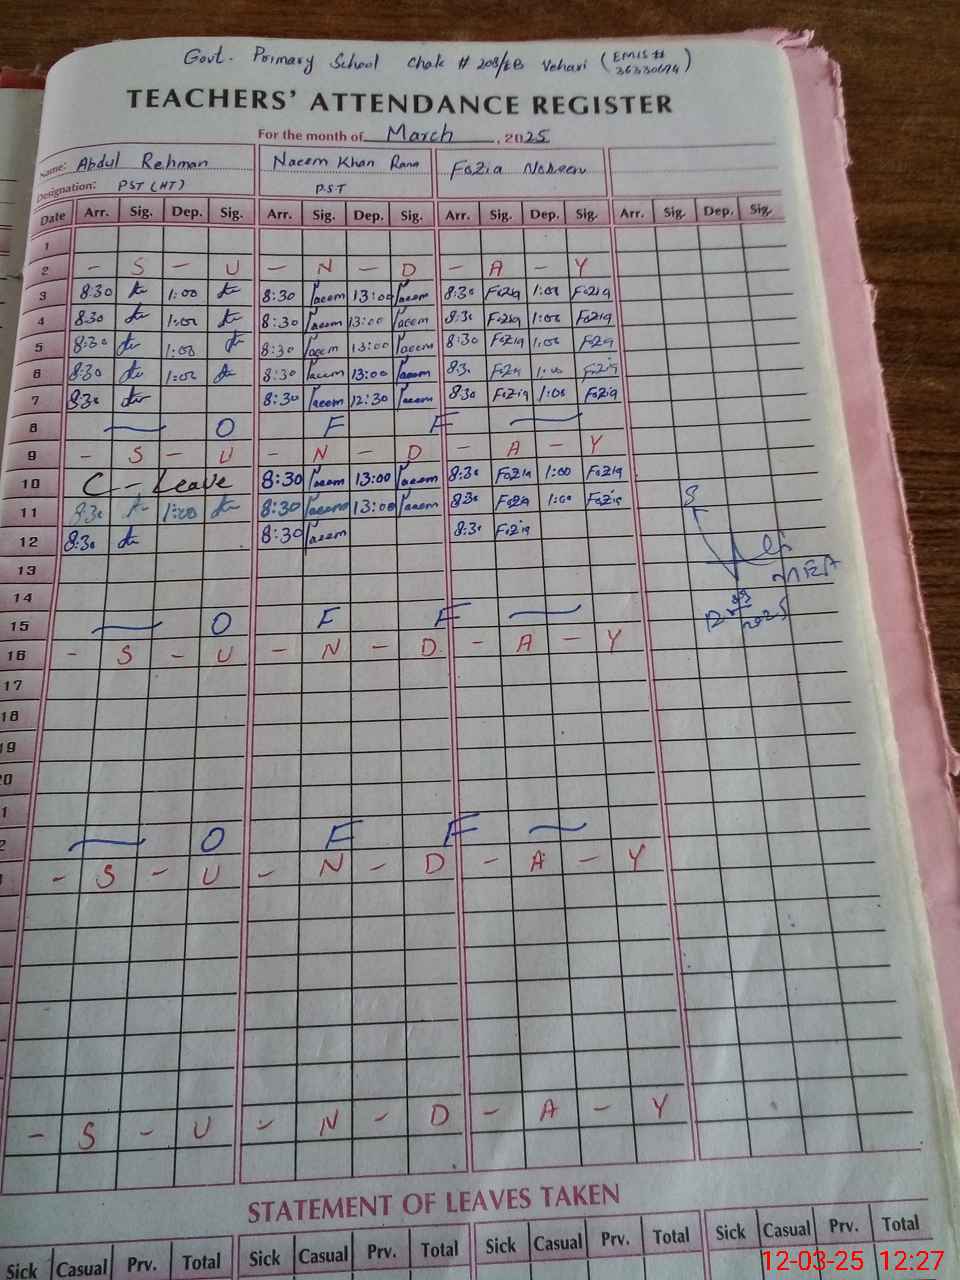 Govt. Primary School Chak # 208/EB Vehari (EMIS # 36330674)
TEACHERS' ATTENDANCE REGISTER
For the month of March, 2025
Name: Abdul Rehman Naeem Khan Rana Fozia Nosheen
Designation: PST (HT) PST
Date Arr. Sig. Dep. Sig. Arr. Sig. Dep. Sig. Arr. Sig. Dep. Sig. Arr. Sig. Dep. Sig.
1
2 - S - U - N - D - A - Y
3 8:30 1:00 8:30 Naeem 13:00 Naeem 8:30 Fozia 1:00 Fozia
4 8:30 1:00 8:30 Naeem 13:00 Naeem 8:30 Fozia 1:00 Fozia
5 8:30 1:00 8:30 Naeem 13:00 Naeem 8:30 Fozia 1:00 Fozia
6 8:30 1:00 8:30 Naeem 13:00 Naeem 8:30 Fozia 1:00 Fozia
7 8:30 8:30 Naeem 12:30 Naeem 8:30 Fozia 1:00 Fozia
8 — O F F —
9 - S - U - N - D - A - Y
10 C - Leave 8:30 Naeem 13:00 Naeem 8:30 Fozia 1:00 Fozia
11 8:30 1:00 8:30 Naeem 13:00 Naeem 8:30 Fozia 1:00 Fozia
12 8:30 8:30 Naeem 8:30 Fozia
13
MEA
14
15 — O F F —
2025
16 - S - U - N - D - A - Y
17
18
19
20
1
2 — O F F —
- S - U - N - D - A - Y
- S - U - N - D - A - Y
STATEMENT OF LEAVES TAKEN
Sick Casual Prv. Total Sick Casual Prv. Total Sick Casual Prv. Total Sick Casual Prv. Total
12-03-25 12:27